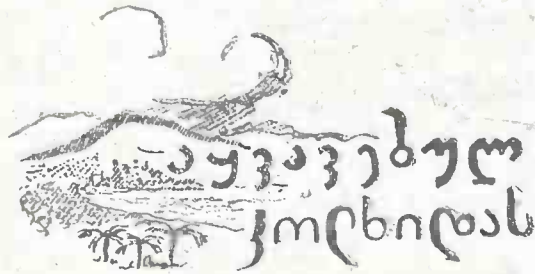 აყვავებულ
კოლხიდას